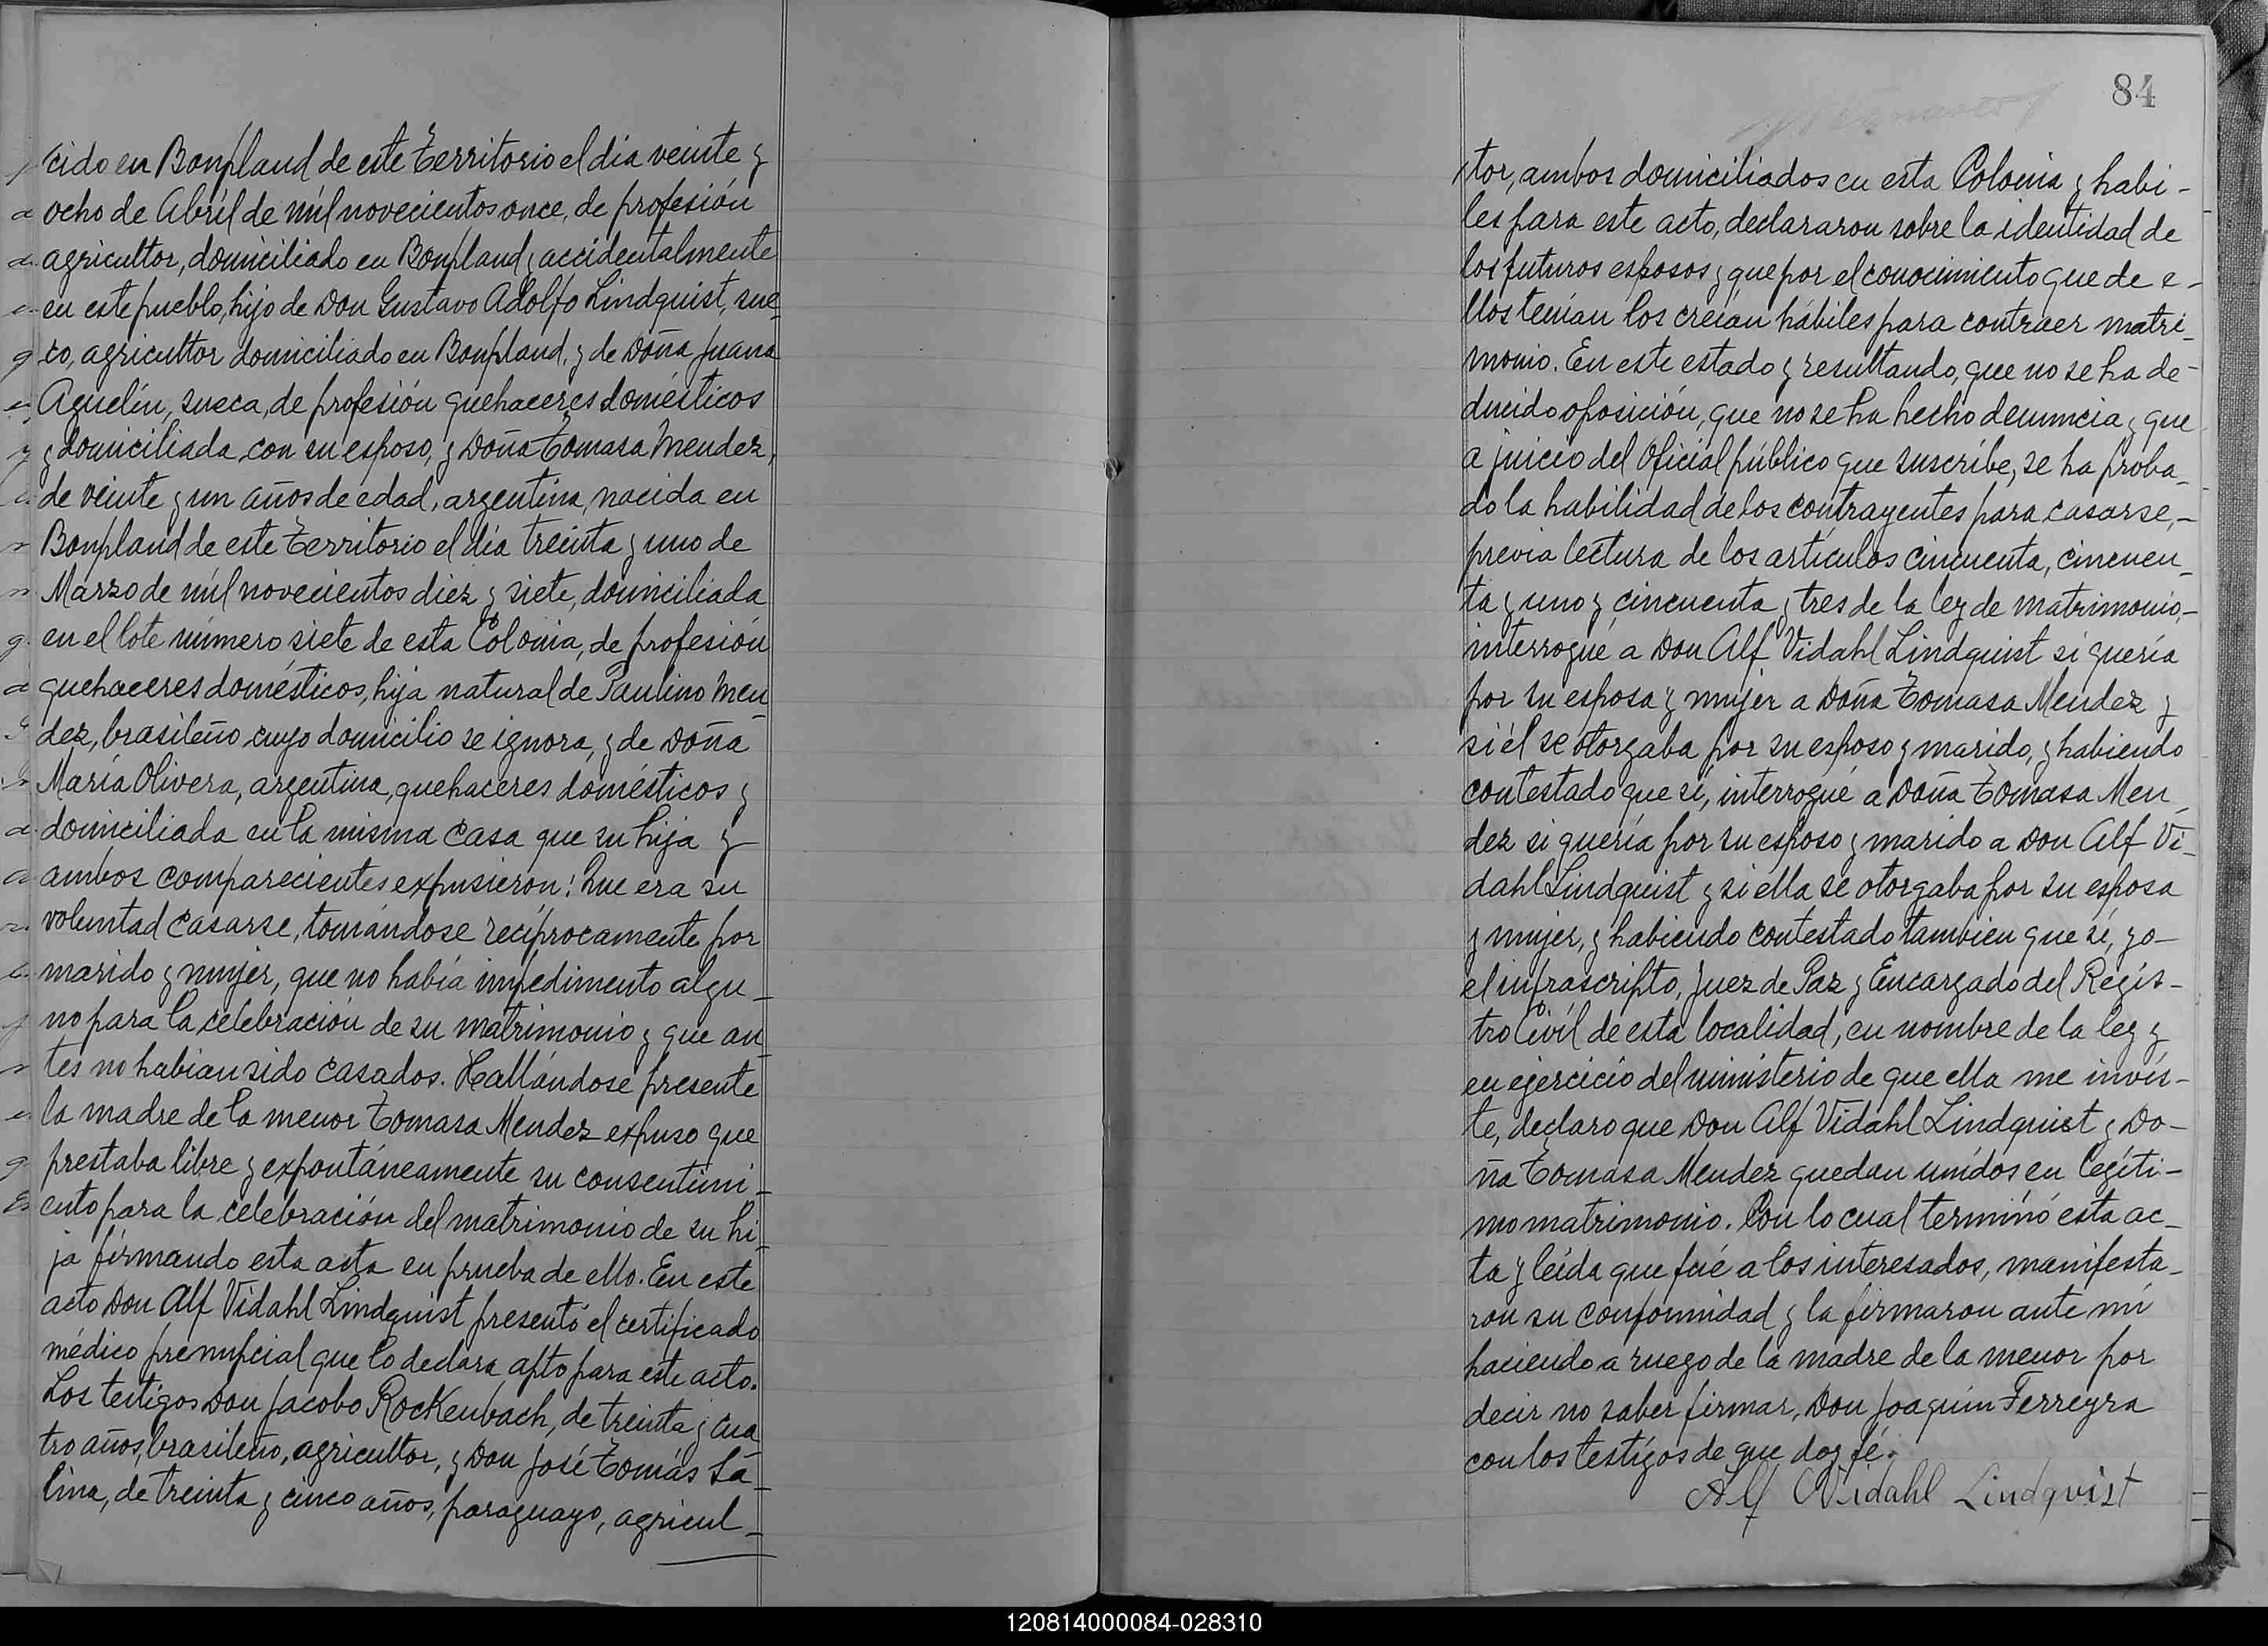 cido en Bonpland de este Territorio el dia veinte y
ocho de Abril de mil novecientos once, de profesión
agricultor, domiciliado en Bonpland y accidentalmente
en este pueblo, hijo de Don Gustavo Adolfo Lindquist, sue_
co, agricultor domiciliado en Bonpland, y de Doña Juana
Aquelín, sueca, de profesión quehaceres domésticos
y domiciliada con su esposo, y Doña Tomasa Mendez,
de veinte y un años de edad, argentina, nacida en
Bonpland de este Territorio el día treinta y uno de
Marzo de mil novecientos diez y siete, domiciliada
en el lote número siete de esta Colonia, de profesión
quehaceres domésticos, hija natural de Paulino Men_
dez, brasileño cuyo domicilio se ignora, y de Doña
María Olivera, argentina, quehaceres domésticos y
domiciliada en la misma casa que su hija y
ambos comparecientes expusieron: Que era su
voluntad casarse, tomándose recíprocamente por
marido y mujer, que no había impedimento algu_
no para la celebración de su matrimonio y que an_
tes no habian sido casados. Hallándose presente
la madre de la menor Tomasa Mendez expuso que
prestaba libre y expontáneamente su consentimi_
ento para la celebración del matrimonio de su hi_
ja firmando esta acta en prueba de ello. En este
acto Don Alf Vidahl Lindquist presentó el certificado
médico prenupcial que lo declara apto para este acto.
Los testigos Don Jacobo Rockenbach, de treinta y cua_
tro años, brasileño, agricultor, y Don José Tomás Sa_
lina, de treinta y cinco años, paraguayo, agricul_
84
tor, ambos domiciliados en esta Colonia y habi-
les para este acto, declararon sobre la identidad de
los futuros esposos y que por el conocimiento que de e-
llos tenían los creían hábiles para contraer matri_
monio. En este estado y resultando, que no se ha de-
ducido oposición, que no se ha hecho denuncia y que
a juicio del Oficial público que suscribe, se ha proba_
do la habilidad de los contrayentes para casarse,-
previa lectura de los artículos cincuenta, cincuen_
ta y uno y cincuenta y tres de la ley de matrimonio,-
interrogué a Don Alf Vidahl Lindquist si quería
por su esposa y mujer a Doña Tomasa Mendez y
si él se otorgaba por su esposo y marido, y habiendo
contestado que sí, interrogué a Doña Tomasa Men_
dez si quería por su esposo y marido a Don Alf Vi_
dahl Lindquist y si ella se otorgaba por su esposa
y mujer, y habiendo contestado tambien que sí, yo-
el infrascripto, Juez de Paz y Encargado del Regis-
tro Civil de esta localidad, en nombre de la ley y
en ejercicio del ministerio de que ella me invis-
te, declaro que Don Alf Vidahl Lindquist y Do-
ña Tomasa Mendez quedan unidos en legíti-
mo matrimonio. Con lo cual terminó esta ac_
ta y leída que fué a los interesados, manifesta_
ron su conformidad y la firmaron ante mí
haciendo a ruego de la madre de la menor por
decir no saber firmar, Don Joaquín Ferreyra
con los testigos de que doy fé.
Alf Vidahl Lindqvist
120814000084-028310